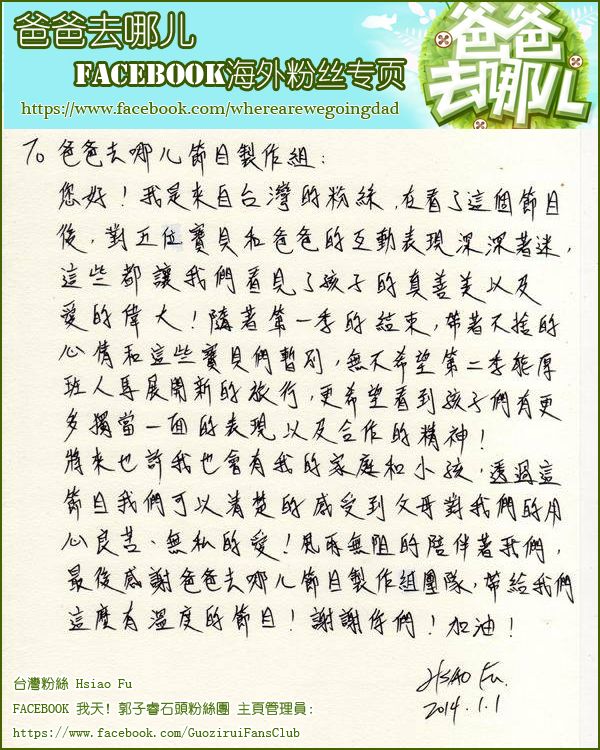 爸爸去哪儿
FACEBOOK海外粉丝专页
https://www.facebook.com/wherearewegoingdad
爸爸
去哪儿
To 爸爸去哪儿節目製作組:
您好!我是來自台灣的粉絲,在看了這個節目
後,對五位寶貝和爸爸的互動表現深深著迷,
這些都讓我們看見了孩子的真善美以及
愛的偉大!隨著第一季的結束,帶著不捨的
心情和這些寶貝們暫別,無不希望第二季能厚
班人馬展開新的旅行,更希望看到孩子們有更
多獨當一面的表現以及合作的精神!
將來也許我也會有我的家庭和小孩,透過這
節目我們可以清楚的感受到父母對我們的用
心良苦、無私的愛!風雨無阻的陪伴著我們,
最後感謝爸爸去哪儿節目製作組團隊,帶給我們
這麼有溫度的節目!謝謝你們!加油!
HSAO Fu.
2014.1.1
台灣粉絲 Hsiao Fu
FACEBOOK 我天! 郭子睿石頭粉絲團 主頁管理員:
https://www.facebook.com/GuoziruiFansClub